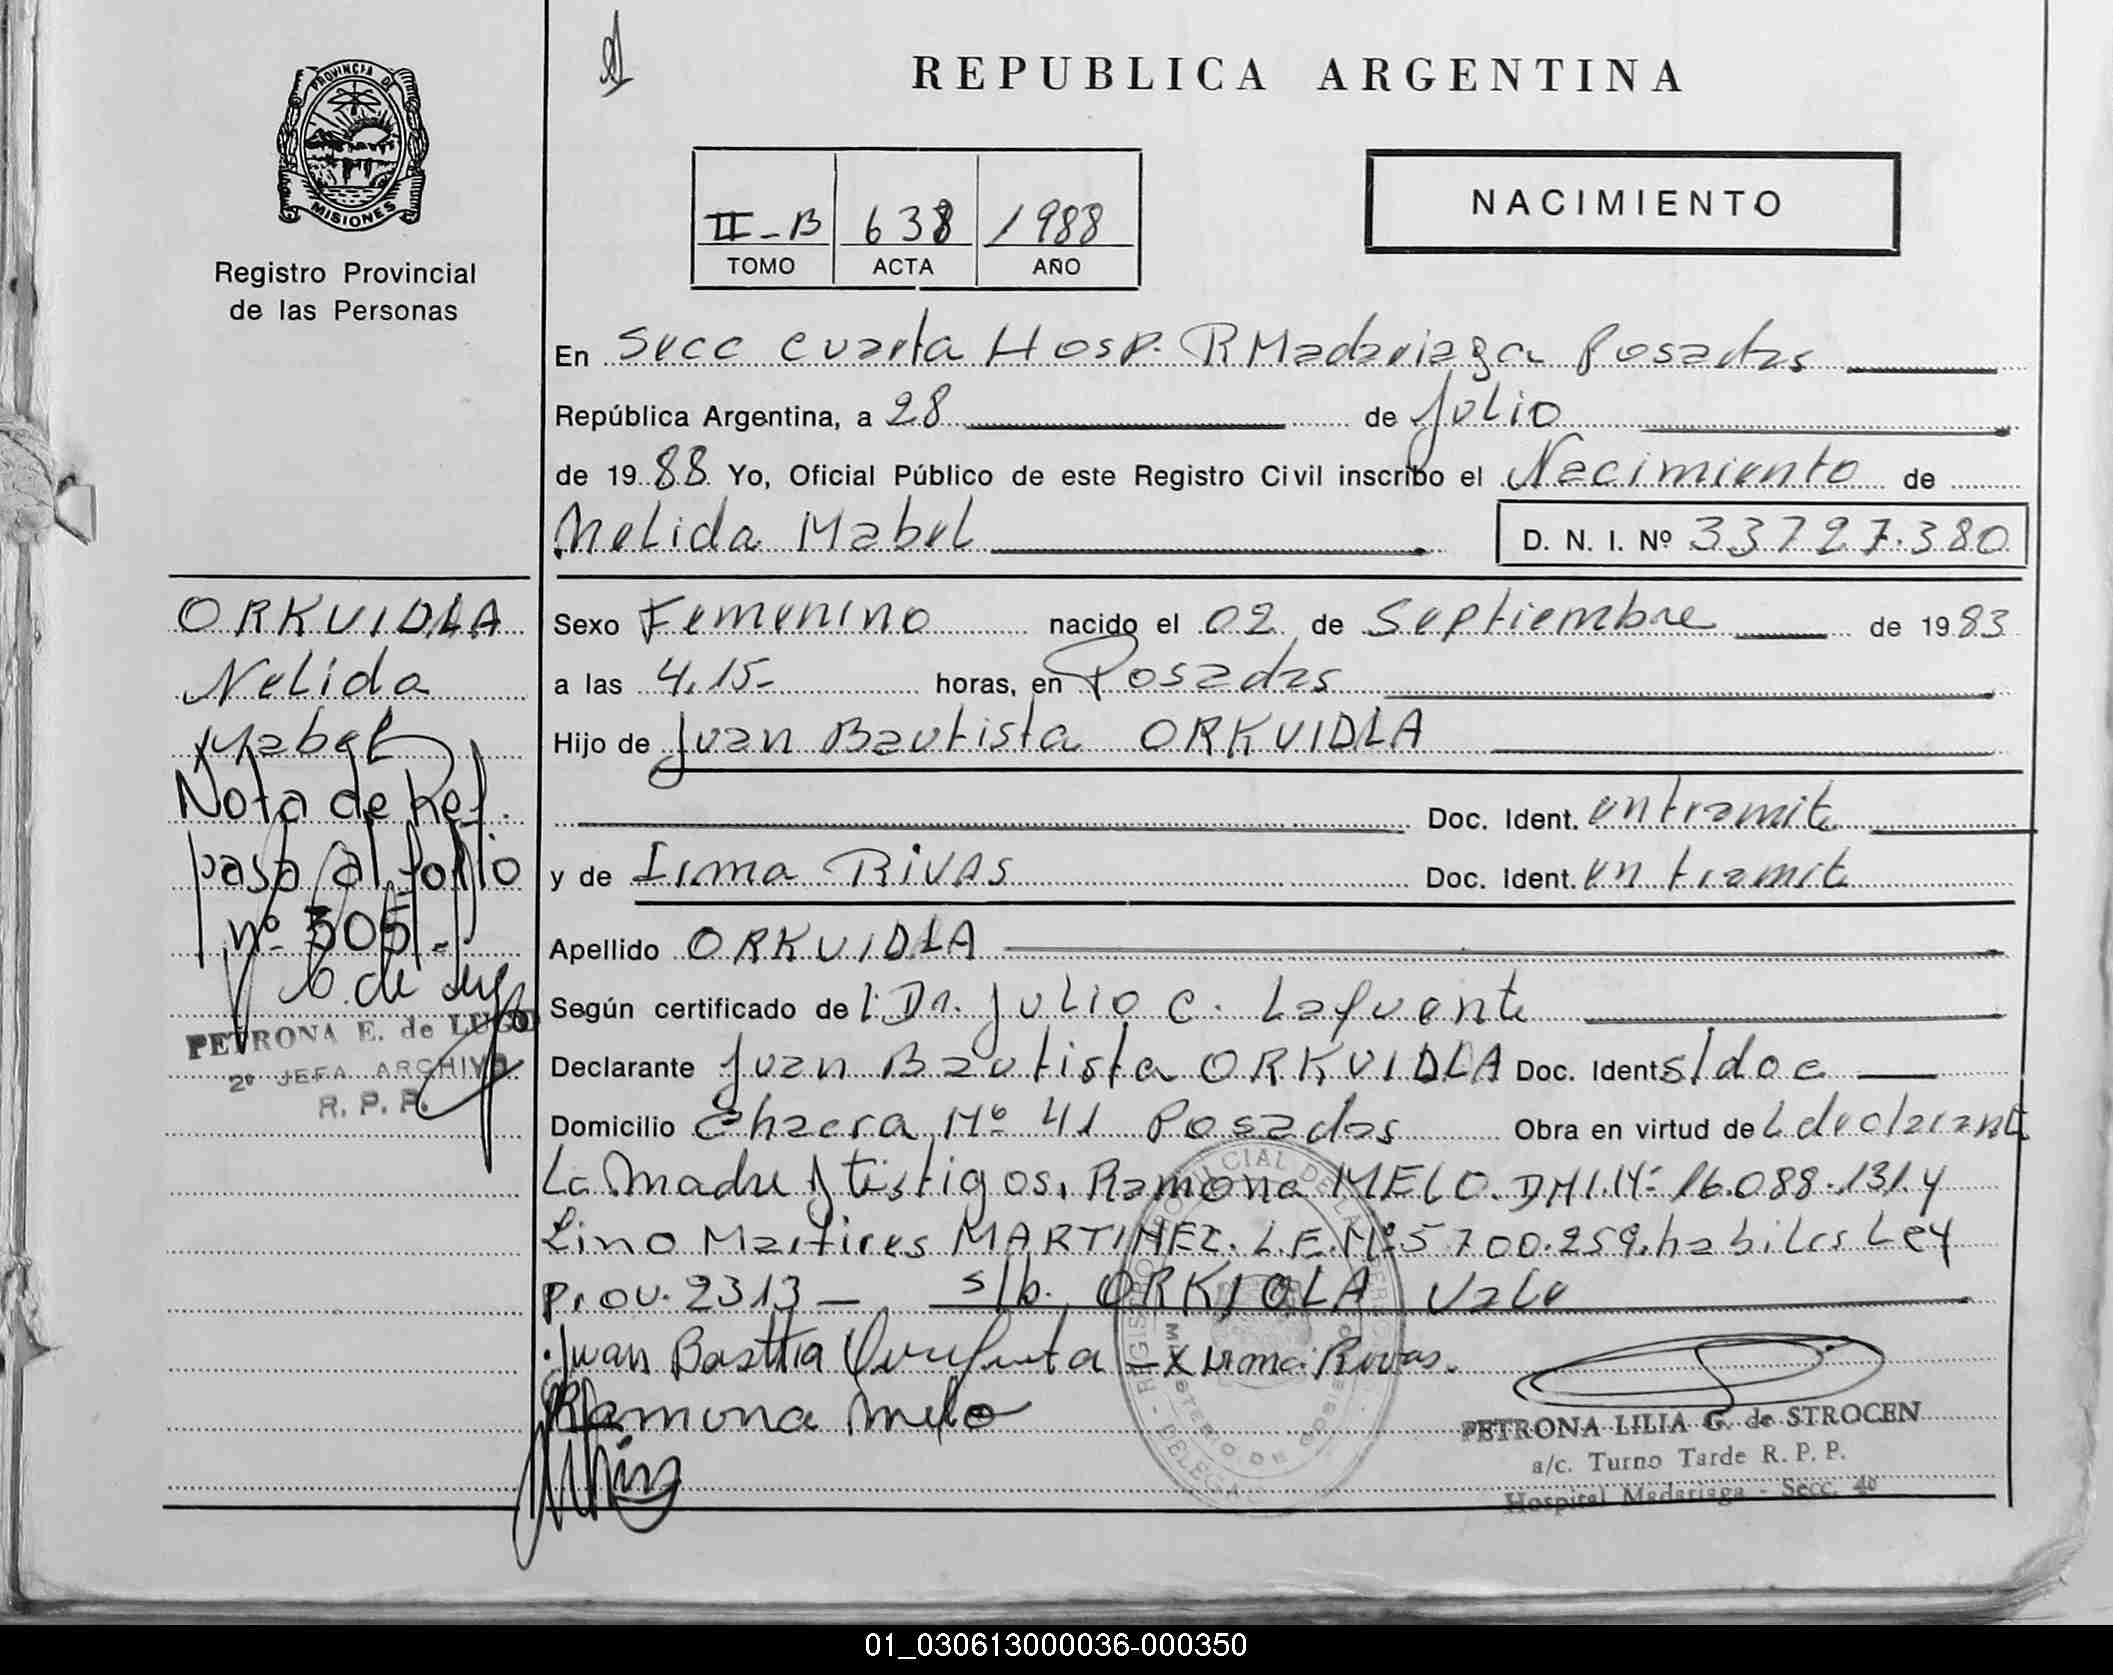 REPUBLICA ARGENTINA
PROVINCIA DE
MISIONES
Registro Provincial
de las Personas
II-B 638 1988
TOMO ACTA AÑO
NACIMIENTO
En Secc cuarta Hosp. R Madariaga Posadas
República Argentina, a 28 de Julio
de 1988 Yo, Oficial Público de este Registro Civil inscribo el Nacimiento de
Nelida Mabel D. N. I. Nº 33727.380
ORKUIDLA
Nelida
Mabel
Nota de Ref.
pasa al folio
nº 305.-
PETRONA E. de LUGO
2º JEFA ARCHIVO
R. P. P.
Sexo Femenino nacido el 02 de Septiembre de 1983
a las 4.15- horas, en Posadas
Hijo de Juan Bautista ORKUIDLA
Doc. Ident. en tramite
y de Irma RIVAS Doc. Ident. en tramite
Apellido ORKUIDLA
Según certificado del Dr. Julio C. Lafuente
Declarante Juan Bautista ORKUIDLA Doc. Ident s/doc
Domicilio Chacra Nº 41 Posadas Obra en virtud del declarante
La madre y testigos, Ramona MELO. DNI.Nº 16.088.131. y
Lino Martires MARTINEZ. L.E. Nº 5 700.259. habiles Ley
Prov. 2313 - s/b. ORKIOLA Vale
Juan X Irma Rivas.
Ramona Melo
PETRONA LILIA G. de STROCEN
a/c. Turno Tarde R. P. P.
Hospital Madariaga - Secc. 4º
01_030613000036-000350